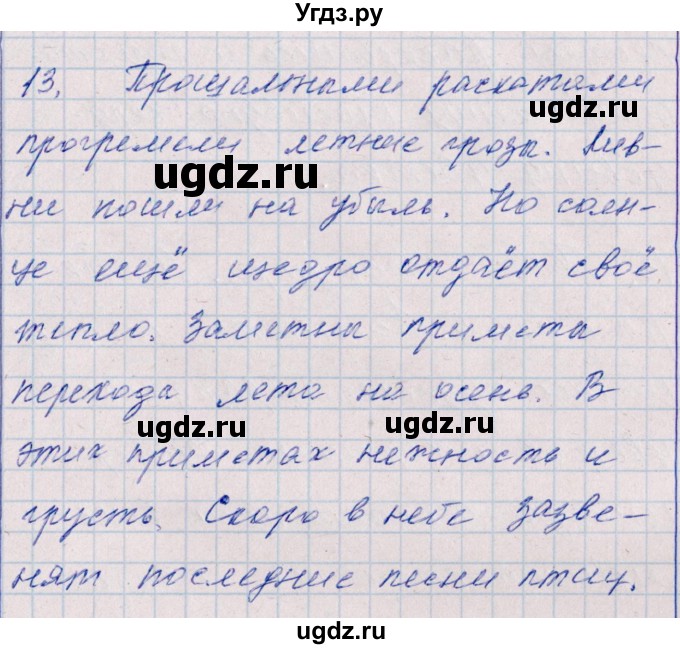 Угдз.ру
13. Прощальными раскатами
ugdz.ru
прогремели летние грозы. Лив-
ugdz.ru ugdz.ru
ни пошли на убыль. Но солн-
це ещё щедро отдаёт своё
тепло. Заметны приметы
ugdz.ru
перехода лета на осень. В
ugdz.ru
этих приметах нежность и
грусть. Скоро в небе зазве-
ugdz.ru
нят последние песни птиц.
ugdz.ru